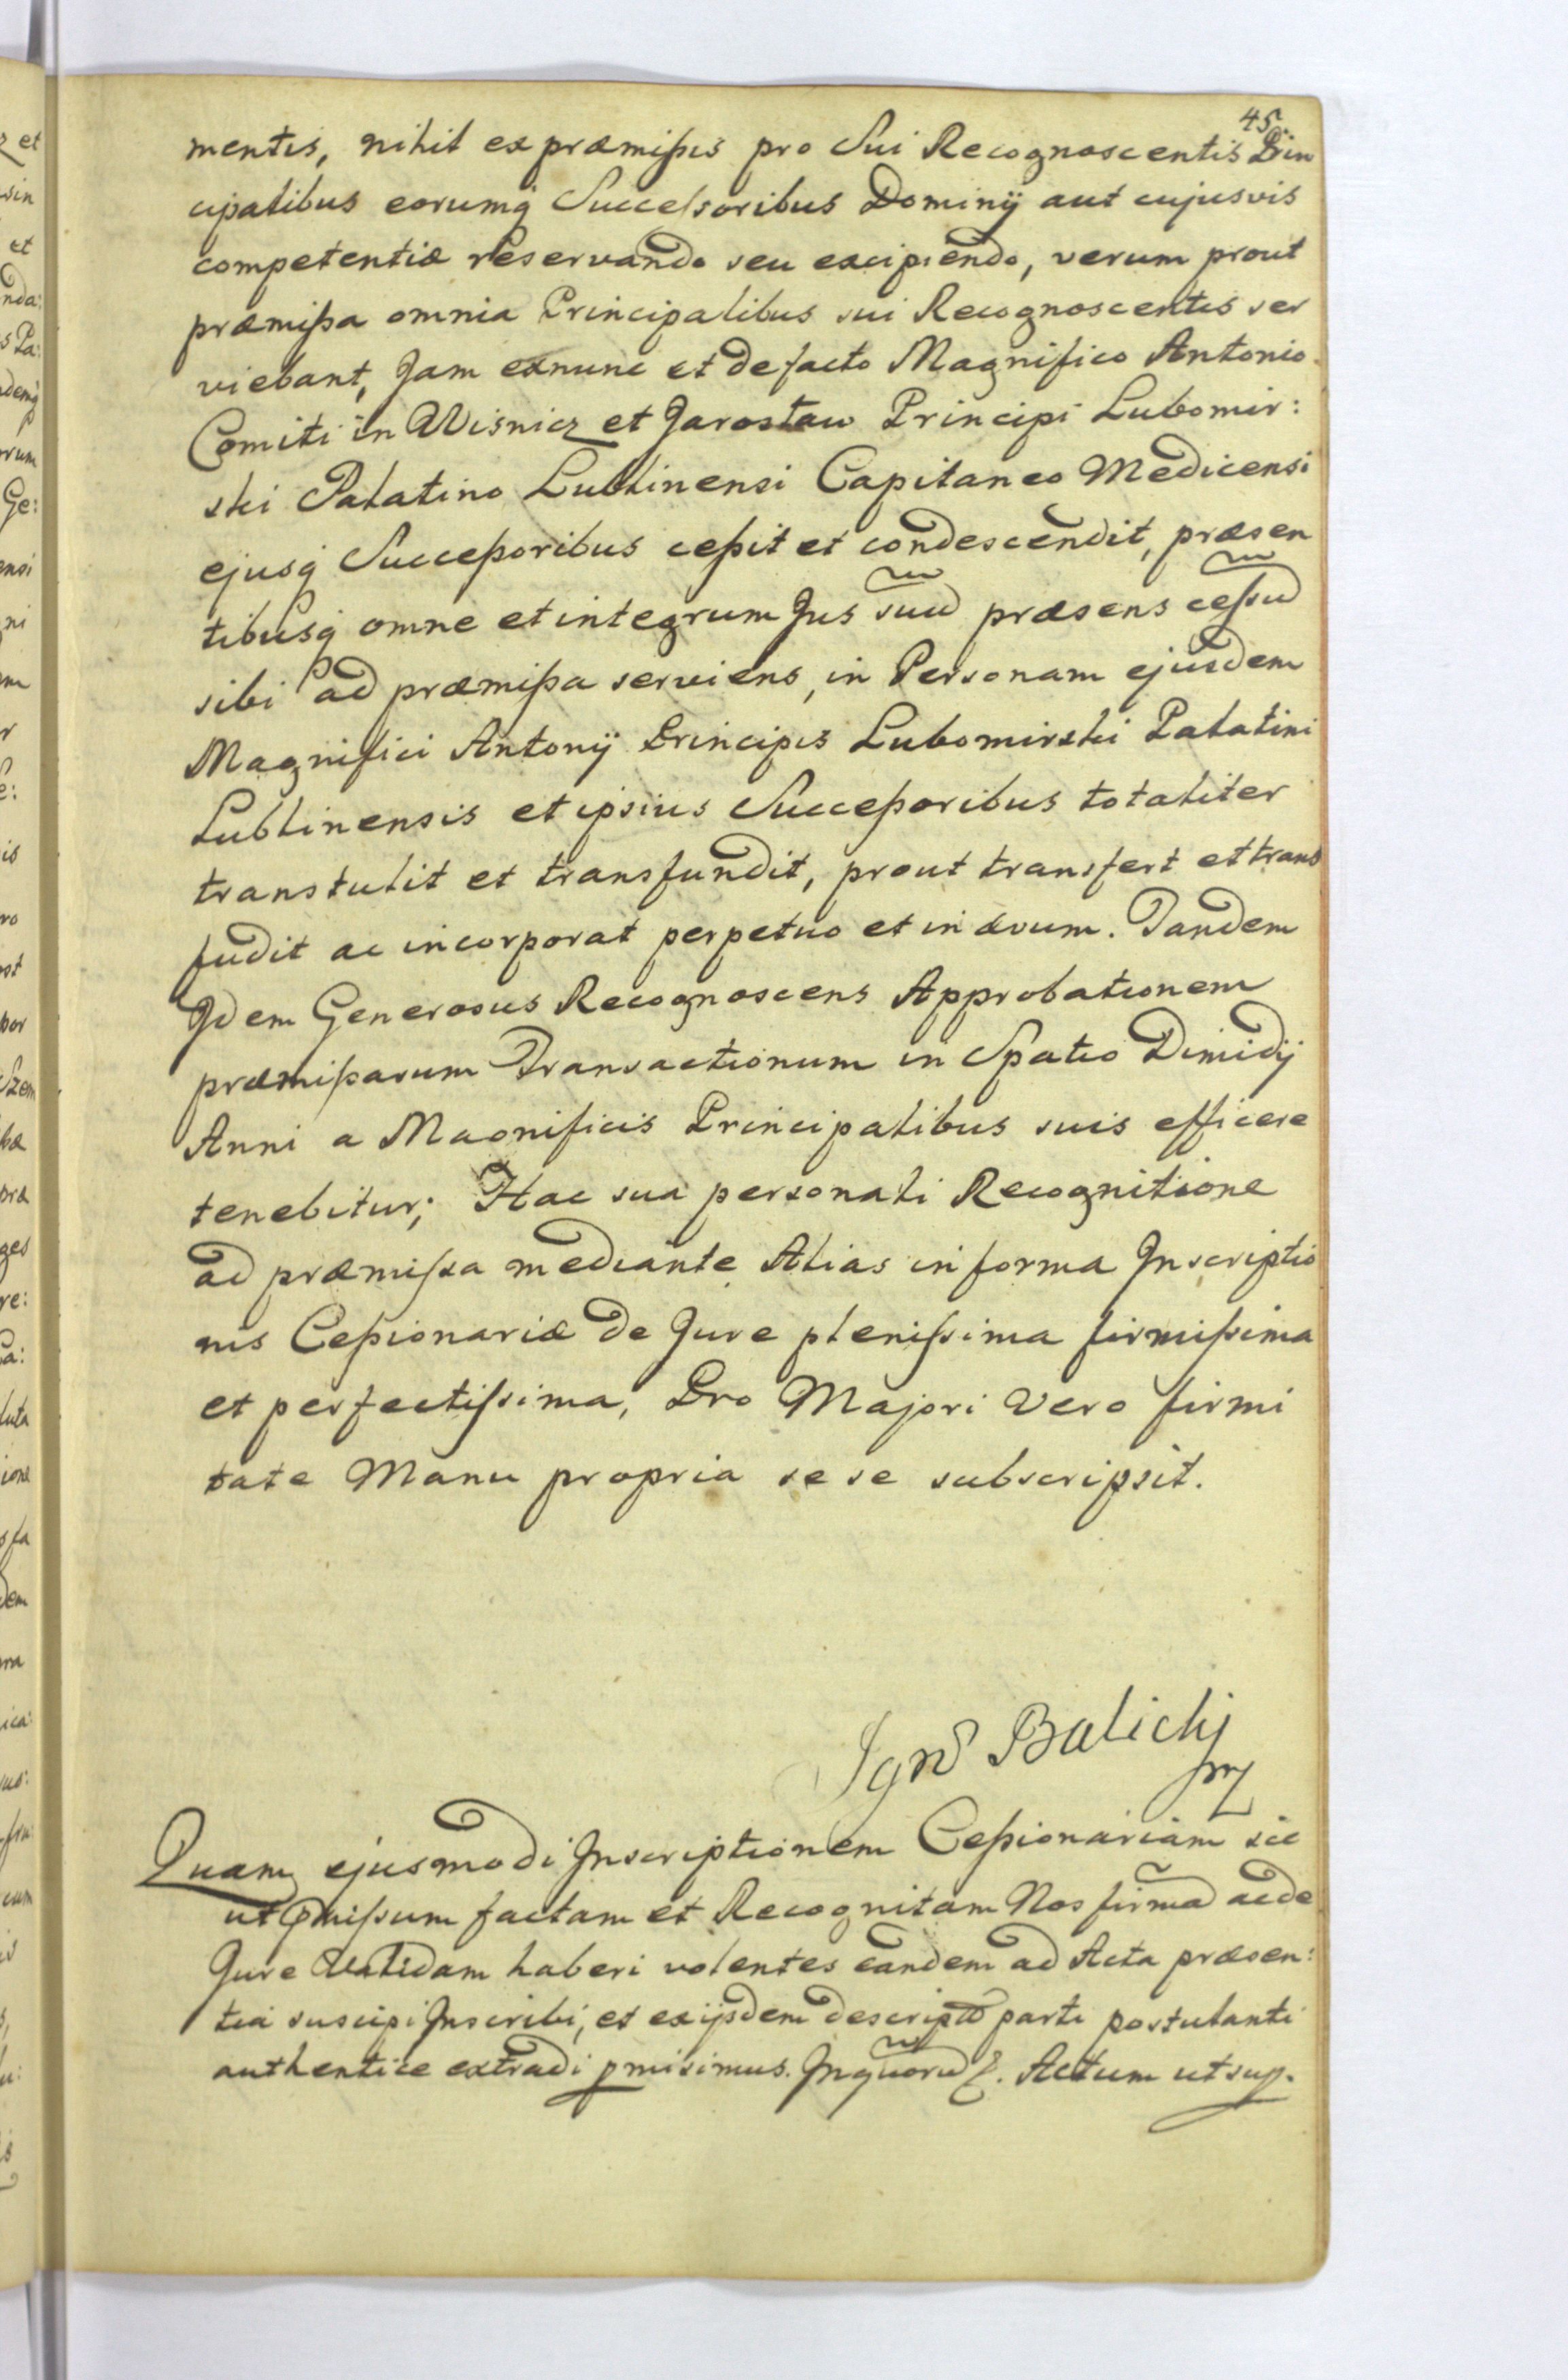 45.
mentis, nihil ex præmißis pro Sui Recognoscentis Prin
cipalibus eorumq Successoribus Dominÿ aut cujusvis
competentiæ reservando seu excipiendo, verum prout
præmißa omnia Principalibus sui Recognoscentis ser
viebant, Jam exnunc et defacto Magnifico Antonio
Comiti in Wisnicz et Jarosław Principi Lubomir:
ski Palatino Lublinensi Capitaneo Medicensi
ejusq Succeßoribus ceßit et condescendit, præsen
tibusq omne et integrum Jus suū præsens ceſsū
sibi ad præmißa serviens, in Personam ejusdem
Magnifici Antonÿ Principis Lubomirski Palatini
Lublinensis et ipsius Succeßoribus totaliter
transtulit et transfundit, prout transfert et trans
fudit ac incorporat perpetuo et in ævum. Tandem
Idem Generosus Recognoscens Approbationem
præmißarum Transactionum in Spatio Dimidÿ
Anni a Magnificis Principalibus suis efficere
tenebitur; Hac sua personali Recognitione
ad præmiſsa mediante Alias in forma Inscriptio
nis Ceßionariæ de Jure pleniſsima firmißima
et perfectiſsima, Pro Majori Vero firmi
tate Manu propria sese subscripsit.
Ignꝰ Balicki
mp
Quam ejusmodi Inscriptionem Ceßionariam sic
ut pmißum factam et Recognitam Nos firmā ac de
Jure Validam haberi volentes eandem ad Acta præsen:
tia suscipi Inscribi, et ex ijsdem descriptā parti postulanti
authentice extradi pmisimus. In quorū &. Actum ut sup.